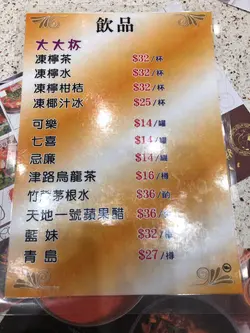 飲品
大大杯
凍檸茶 $32/杯
凍檸水 $32/杯
凍檸柑桔 $32/杯
凍椰汁冰 $25/杯
可樂 $14/罐
七喜 $14/罐
忌廉 $14/罐
津路烏龍茶 $16/樽
竹蔗茅根水 $36/
天地一號蘋果醋 $36/
藍妹 $32/
青島 $27/樽